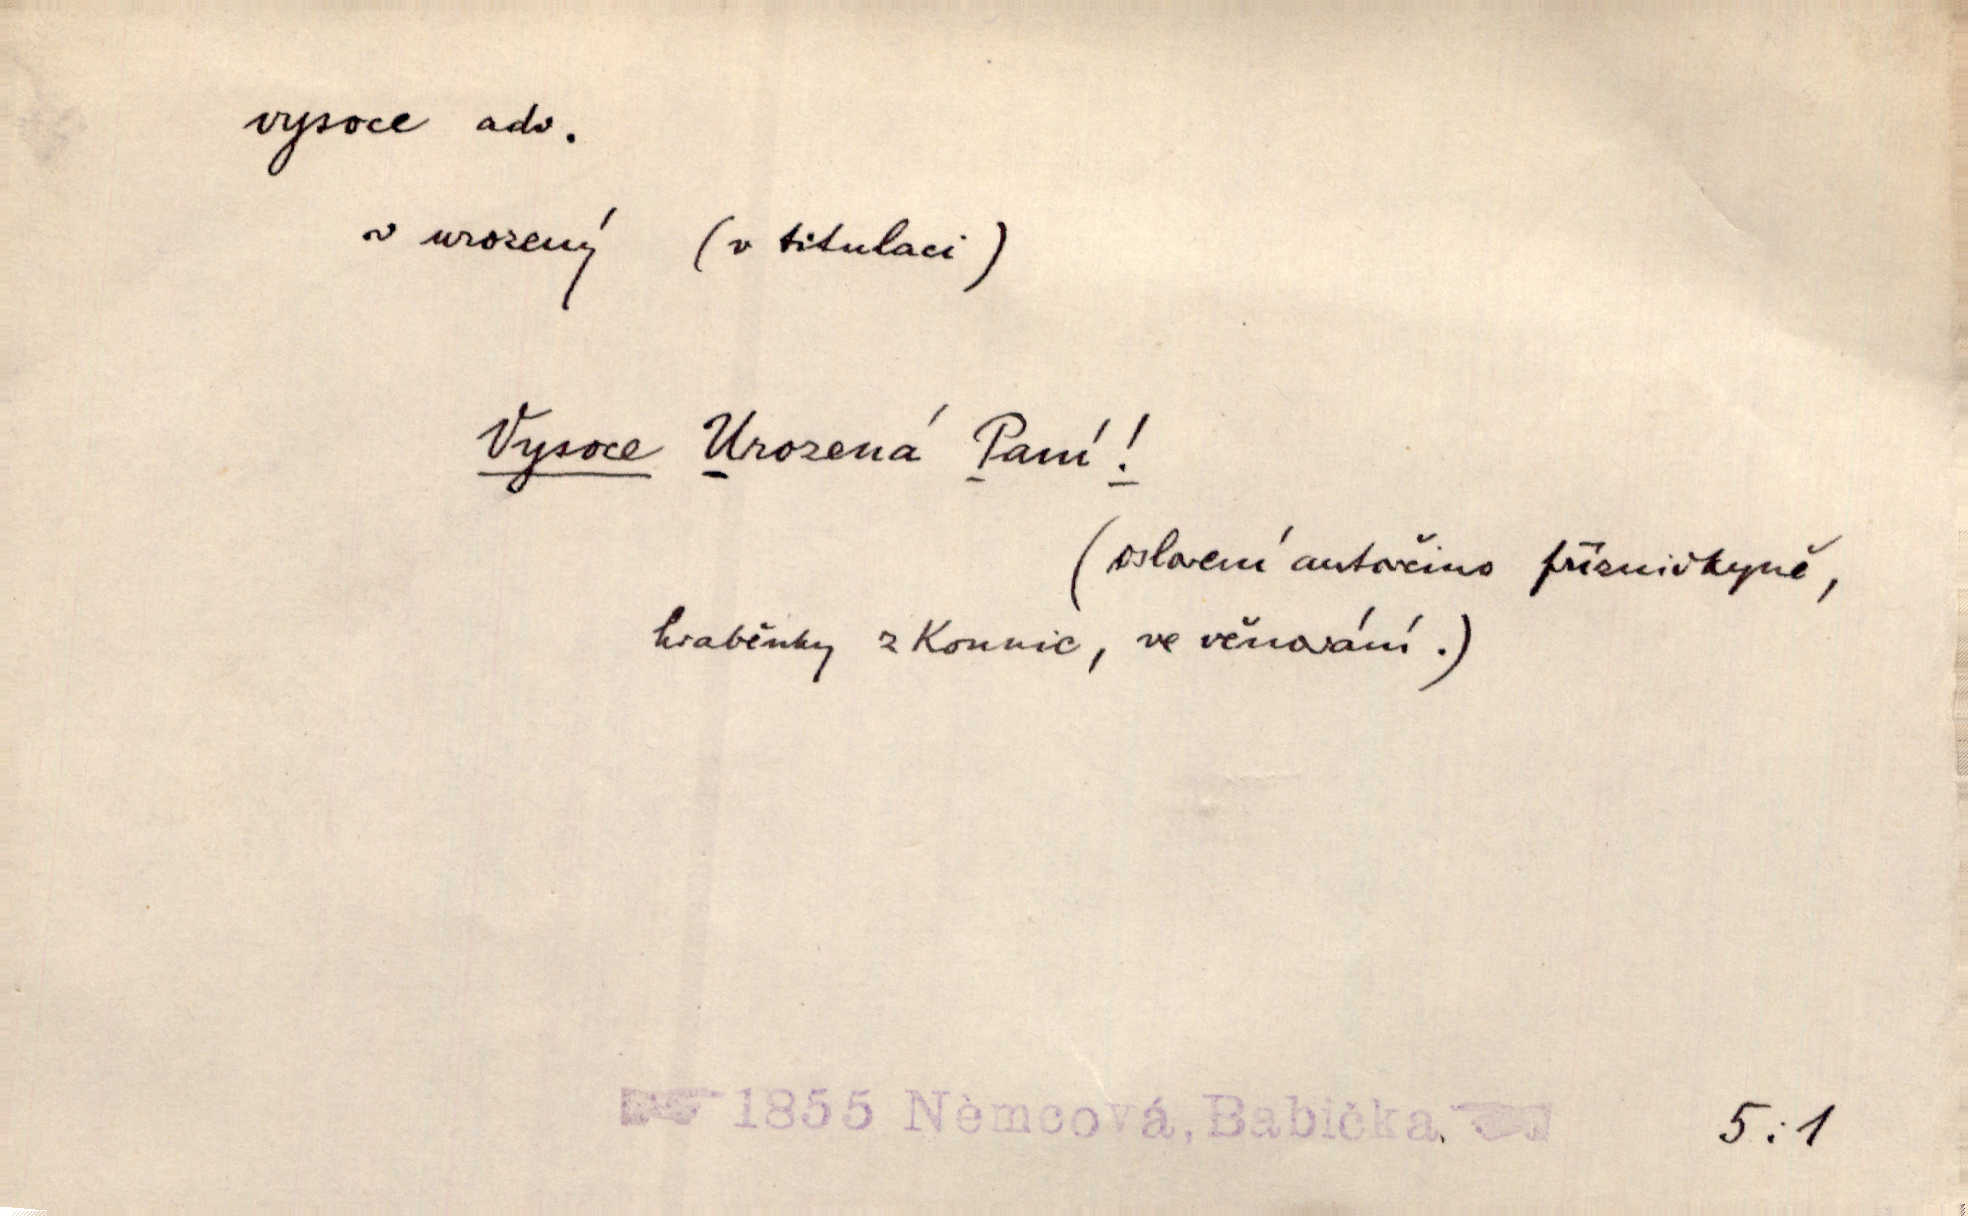 vysoce adv.
~ urozený (v titulaci)
Vysoce Urozená Paní!
(oslovení autorčino příznivkyně,
hraběnky z Kounic, ve věnování.)
1855 Němcová, Babička.
5:1